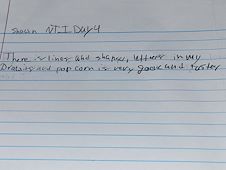 Shown NTI Day 4
There is lines and shapes, letters in my
and pop corn is very good and